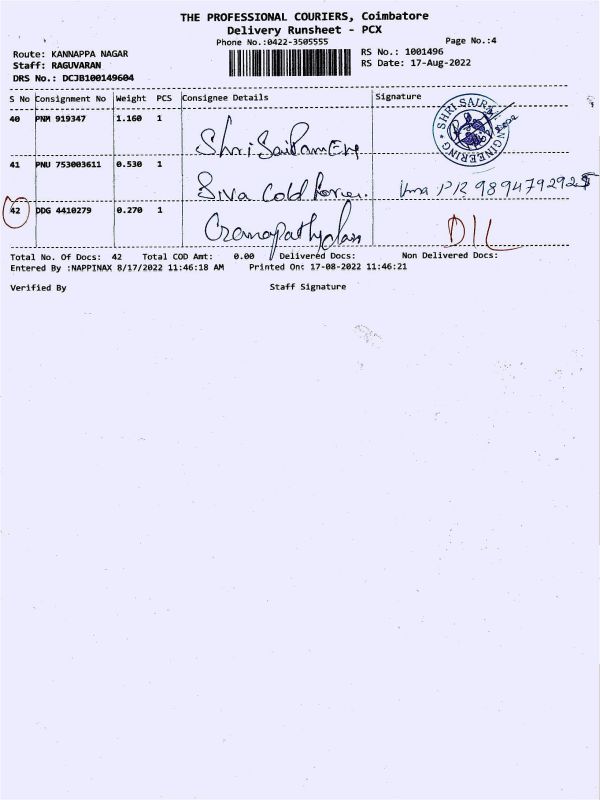 THE PROFESSIONAL COURIERS, Coimbatore
Delivery Runsheet - PCX
Phone No.:0422-3505555
Page No.:4
Route: KANNAPPA NAGAR
RS No.: 1001496
Staff: RAGUVARAN
RS Date: 17-Aug-2022
DRS No.: DCJB100149604
S No Consignment No Weight PCS Consignee Details Signature
40 PNM 919347 1.160 1 Shri SaiRam Eng
SHRI SAIRAM ENGINEERING
41 PNU 753003611 0.530 1 Siva Cold 9894792925
42 DDG 4410279 0.270 1 D/L
Total No. Of Docs: 42 Total COD Amt: 0.00 Delivered Docs: Non Delivered Docs:
Entered By :NAPPINAX 8/17/2022 11:46:18 AM Printed On: 17-08-2022 11:46:21
Verified By Staff Signature